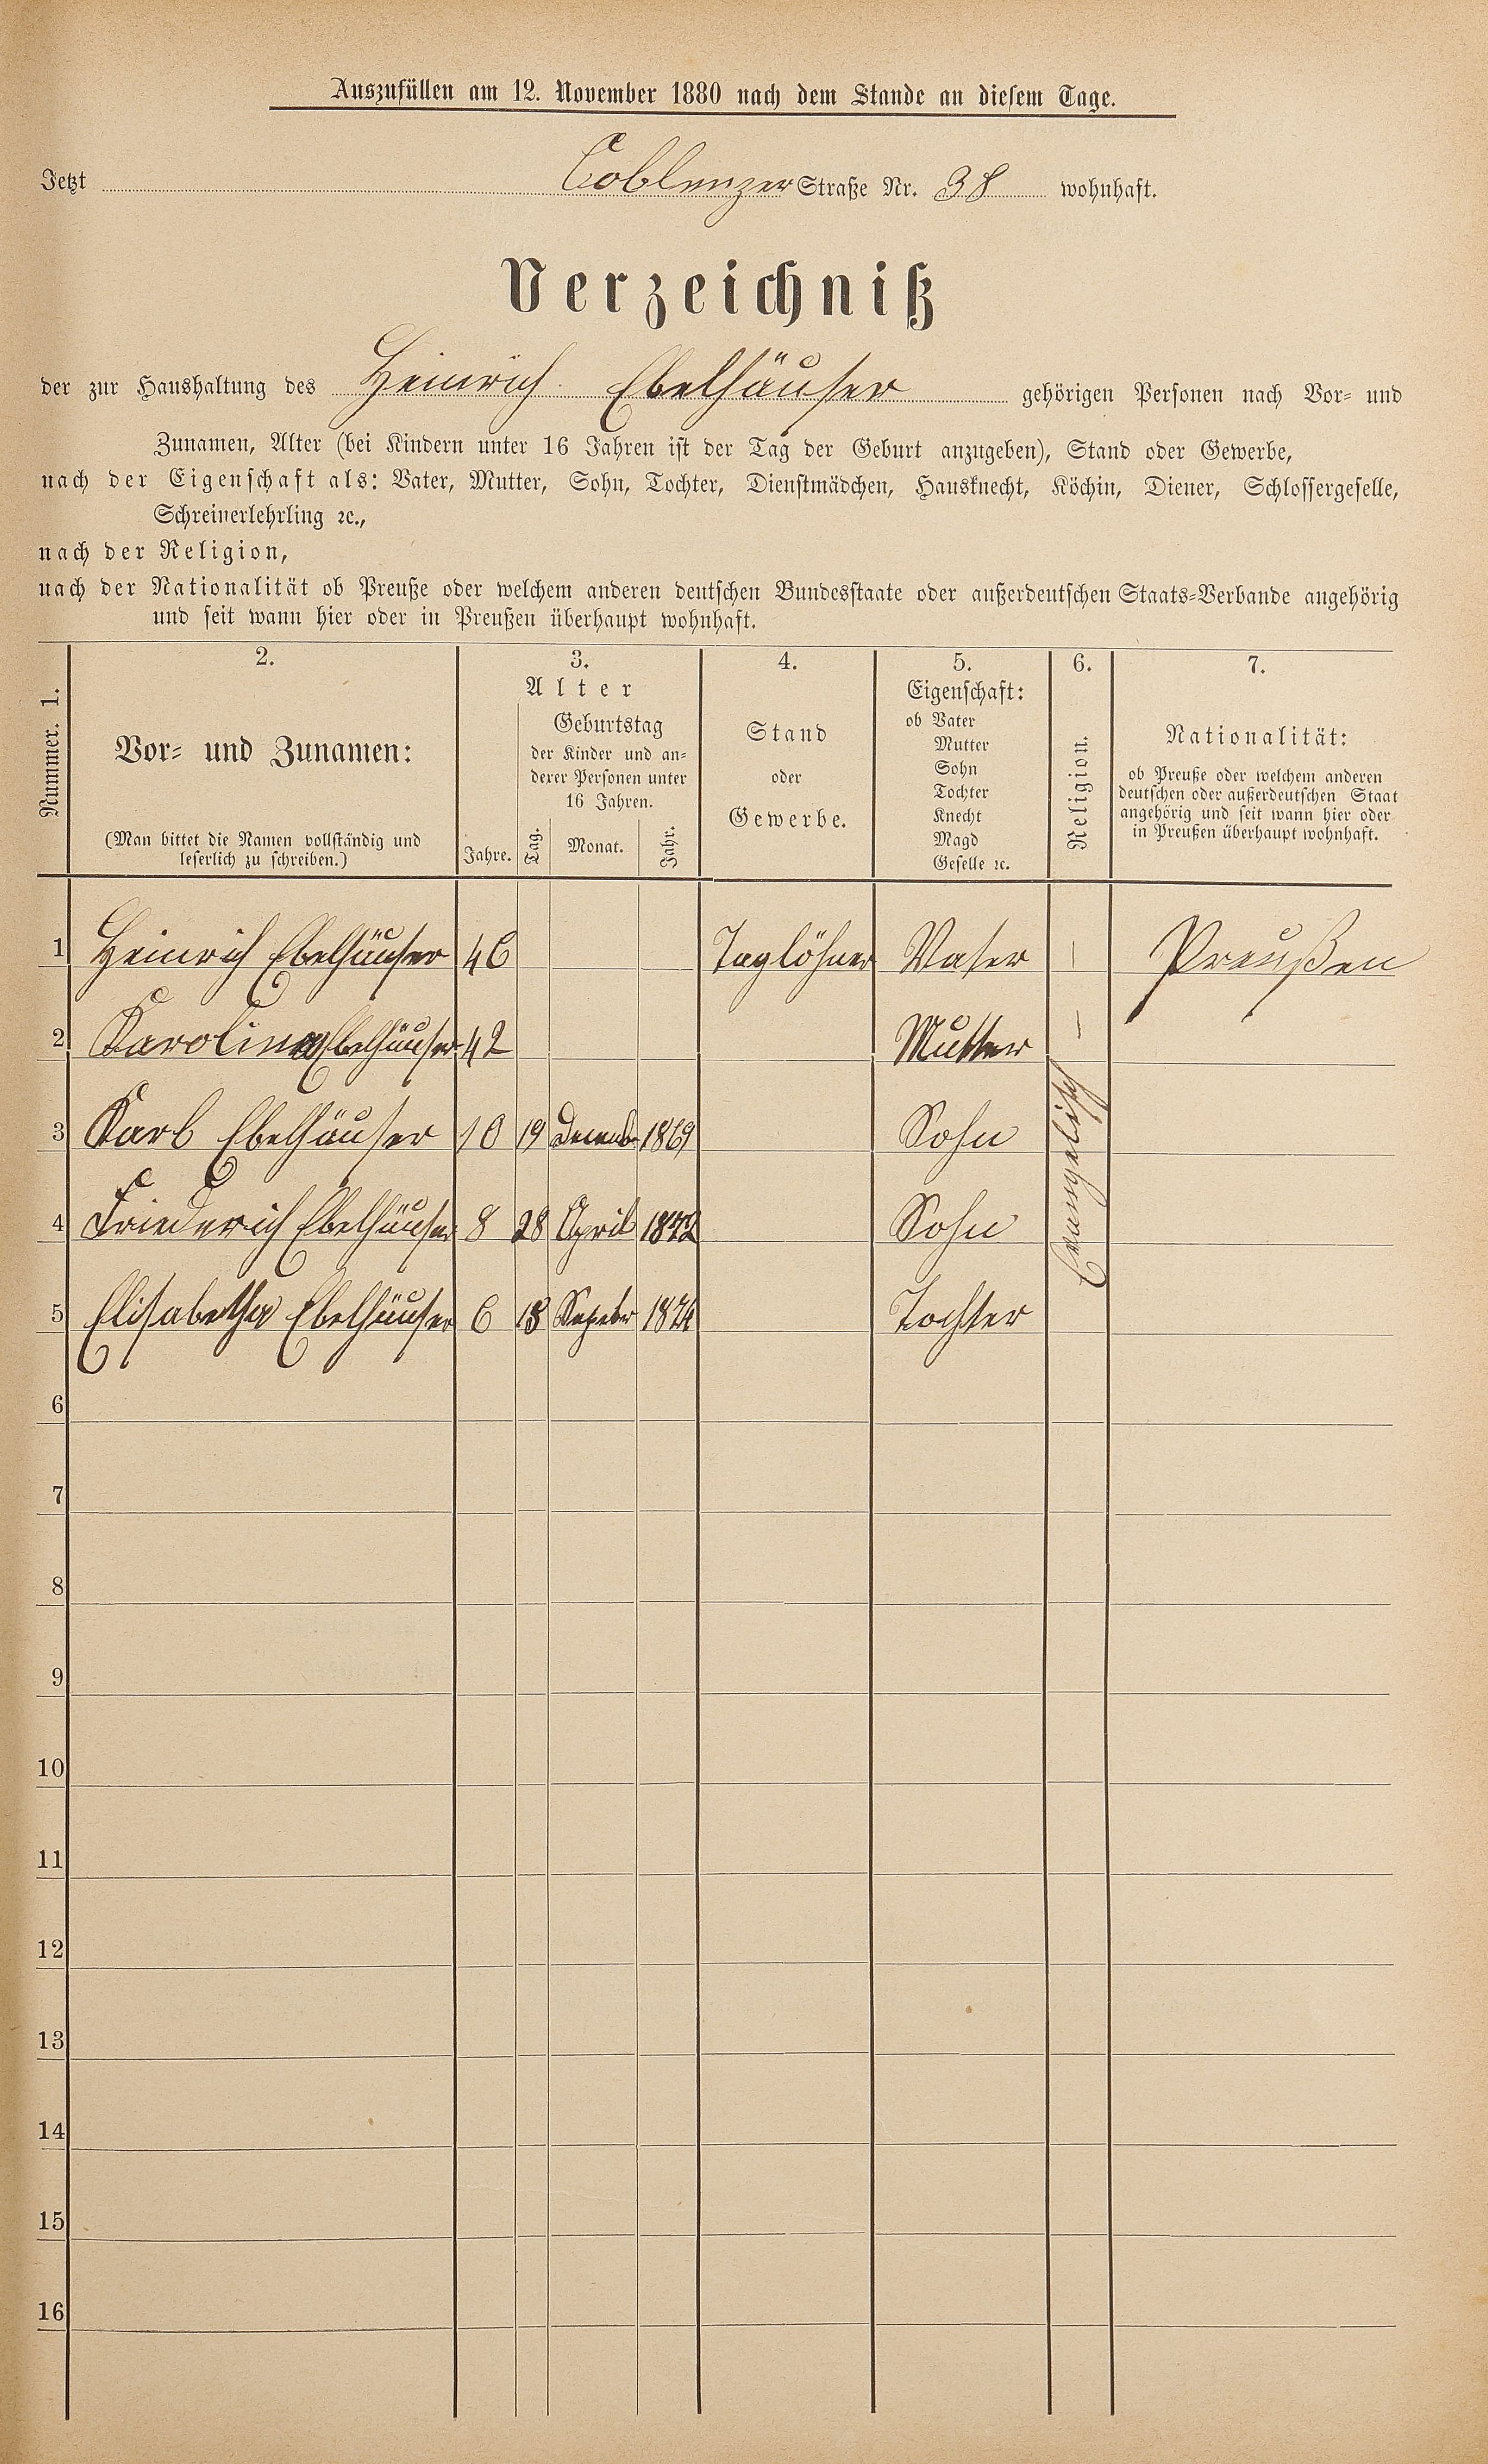 Auszufüllen am 12. November 1880 nach dem Stande an diesem Tage.
Jetzt Coblenzer Straße Nr. 38 wohnhaft.
Verzeichniß
der zur Haushaltung des Heinrich Ebelhäuser gehörigen Personen nach Vor- und
Zunamen, Alter (bei Kindern unter 16 Jahren ist der Tag der Geburt anzugeben), Stand oder Gewerbe,
nach der Eigenschaft als: Vater, Mutter, Sohn, Tochter, Dienstmädchen, Hausknecht, Köchin, Diener, Schlossergeselle,
Schreinerlehrling ꝛc.,
nach der Religion,
nach der Nationalität ob Preuße oder welchem anderen deutschen Bundesstaate oder außerdeutschen Staats-Verbande angehörig
und seit wann hier oder in Preußen überhaupt wohnhaft.
Nummer. 1.
2.
Vor- und Zunamen:
(Man bittet die Namen vollständig und
leserlich zu schreiben.)
3.
Alter
Geburtstag
der Kinder und an-
derer Personen unter
16 Jahren.
Jahre. Tag. Monat. Jahr.
4.
Stand
oder
Gewerbe.
5.
Eigenschaft:
ob Vater
Mutter
Sohn
Tochter
Knecht
Magd
Geselle ꝛc.
6.
Religion.
7.
Nationalität:
ob Preuße oder welchem anderen
deutschen oder außerdeutschen Staat
angehörig und seit wann hier oder
in Preußen überhaupt wohnhaft.
1 Heinrich Ebelhäuser 46 Taglöhner Vater Preußen
2 Karolina Ebelhäuser 42 Mutter
Evangelisch
3 Karl Ebelhäuser 10 19 Decemb 1869 Sohn
4 Friederich Ebelhäuser 8 28 April 1872 Sohn
5 Elisabetha Ebelhäuser 6 18 Sepebr 1874 Tochter
6
7
8
9
10
11
12
13
14
15
16